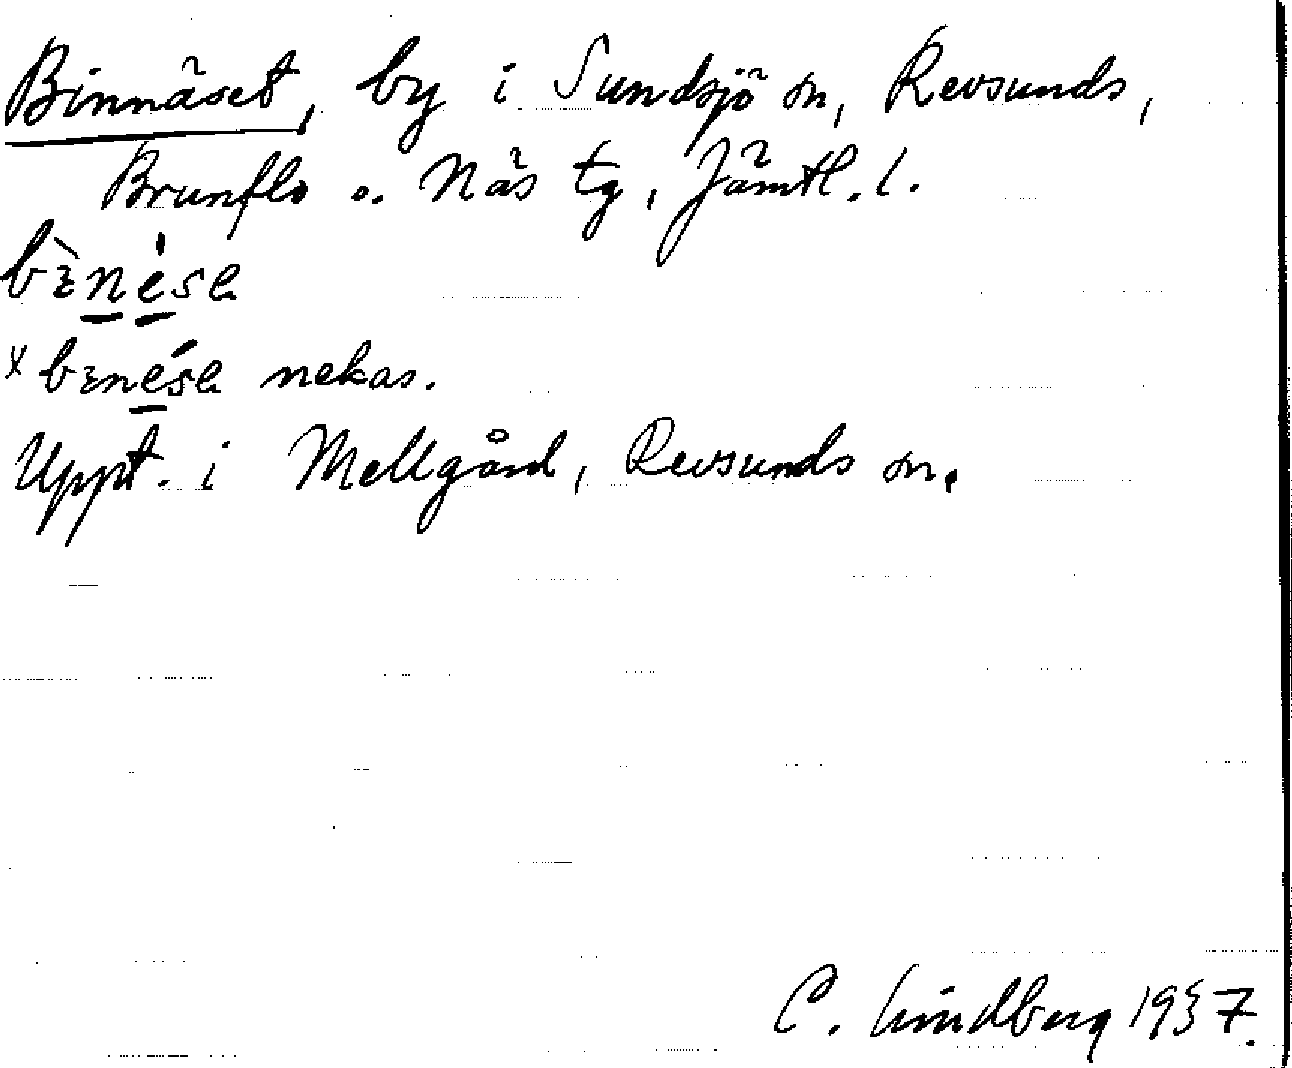 Binnäset, by i Sundsjö sn, Revsunds,
Brunflo o. Näs tg, Jämtl. l.
nekas.
Uppt. i Mellgård, Revsunds sn.
C. Lindberg 1937.